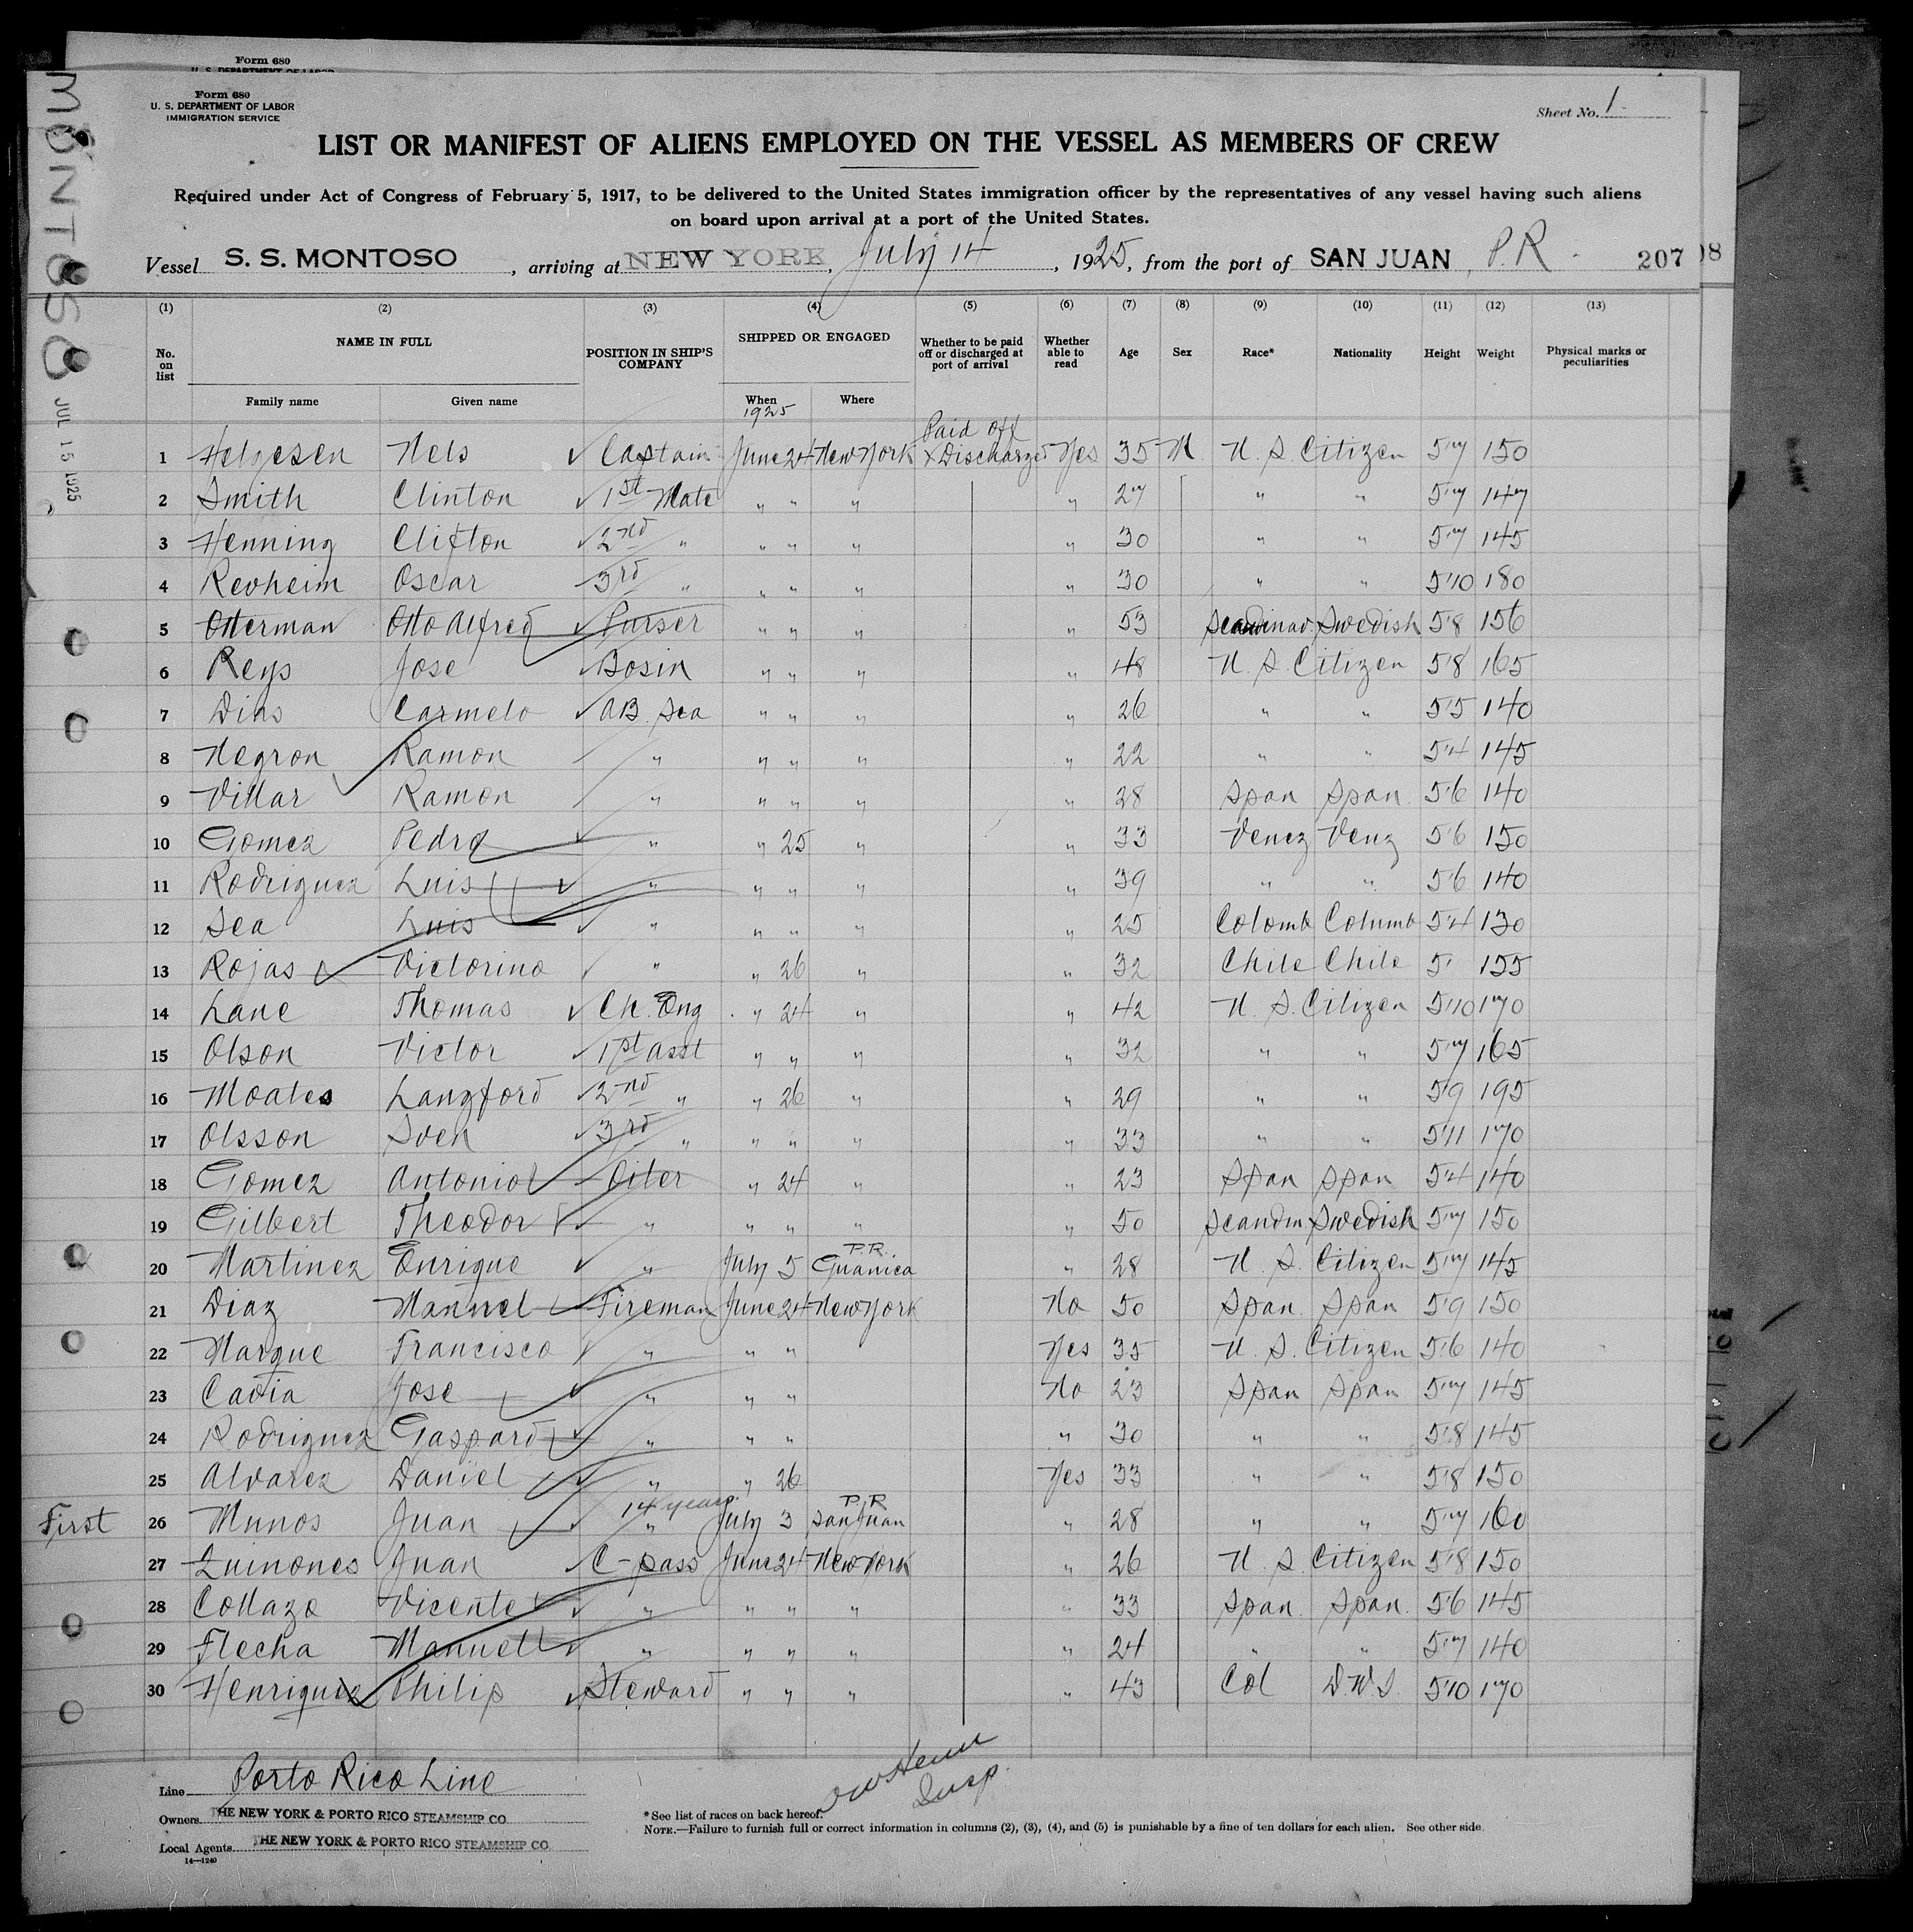 Form 680
U. S. DEPARTMENT OF LABOR
Form 680
U. S. DEPARTMENT OF LABOR
IMMIGRATION SERVICE
Sheet No. 1
LIST OR MANIFEST OF ALIENS EMPLOYED ON THE VESSEL AS MEMBERS OF CREW
Required under Act of Congress of February 5, 1917, to be delivered to the United States immigration officer by the representatives of any vessel having such aliens
on board upon arrival at a port of the United States.
Vessel S. S. MONTOSO, arriving at NEW YORK, July 14, 1925, from the port of SAN JUAN, P.R. 207
(1) (2) (3) (4) (5) (6) (7) (8) (9) (10) (11) (12) (13)
No. on list NAME IN FULL Family name Given name POSITION IN SHIP'S COMPANY SHIPPED OR ENGAGED When Where Whether to be paid off or discharged at port of arrival Whether able to read Age Sex Race* Nationality Height Weight Physical marks or peculiarities
1925
Paid off
1 Helgesen Nels Captain June 24 New York + Discharged Yes 35 M U. S. Citizen 5'7 150
2 Smith Clinton 1st Mate " " " " 27 " " 5'7 147
3 Henning Clifton 2nd " " " " " 30 " " 5'7 145
4 Revheim Oscar 3rd " " " " " 30 " " 5'10 180
5 Otterman Otto Alfred Purser " " " " 53 Scandinav Swedish 5'8 156
6 Reys Jose Bosin " " " " 48 U. S. Citizen 5'8 165
7 Dias Carmelo AB. Sea " " " " 26 " " 5'5 140
8 Negron Ramon " " " " " 22 " " 5'4 145
9 Villar Ramon " " " " " 28 Span Span 5'6 140
10 Gomez Pedro " " 25 " " 33 Venez Venz 5'6 150
11 Rodriguez Luis " " " " " 39 " " 5'6 140
12 Sea Luis " " " " " 25 Colomb Columb 5'4 130
13 Rojas Victorino " " 26 " " 32 Chile Chile 5' 155
14 Lane Thomas Ch. Eng " 24 " " 42 U. S. Citizen 5'10 170
15 Olson Victor 1st asst " " " " 32 " " 5'7 165
16 Moates Langford 2nd " " 26 " " 29 " " 5'9 195
17 Olsson Sven 3rd " " " " " 33 " " 5'11 170
18 Gomez Antonio Oiler " 24 " " 23 Span Span 5'4 140
19 Gilbert Theodor " " " " " 50 Scandin Swedish 5'7 150
20 Martinez Enrique " July 5 P.R. Guanica " 28 U. S. Citizen 5'7 145
21 Diaz Manuel Fireman June 24 New York No 50 Span. Span 5'9 150
22 Marque Francisco " " " Yes 35 U. S. Citizen 5'6 140
23 Cadia Jose " " " No 23 Span Span 5'7 145
24 Rodriguez Gaspard " " " " 30 " " 5'8 145
25 Alvarez Daniel " " 26 Yes 33 " " 5'8 150
14 years.
First 26 Munos Juan " July 3 P.R San Juan " 28 " " 5'7 160
27 Quinones Juan C-pass June 24 New York " 26 U. S. Citizen 5'8 150
28 Collazo Vicente " " " " " 33 Span. Span. 5'6 145
29 Flecha Manuel " " " " " 24 " " 5'7 140
30 Henriquez Philip Steward " " " " 43 Col D.W.I. 5'10 170
Line Porto Rico Line
Insp.
Owners THE NEW YORK & PORTO RICO STEAMSHIP CO
Local Agents THE NEW YORK & PORTO RICO STEAMSHIP CO
14—1240
*See list of races on back hereof.
NOTE.—Failure to furnish full or correct information in columns (2), (3), (4), and (5) is punishable by a fine of ten dollars for each alien. See other side
JUL 15 1925